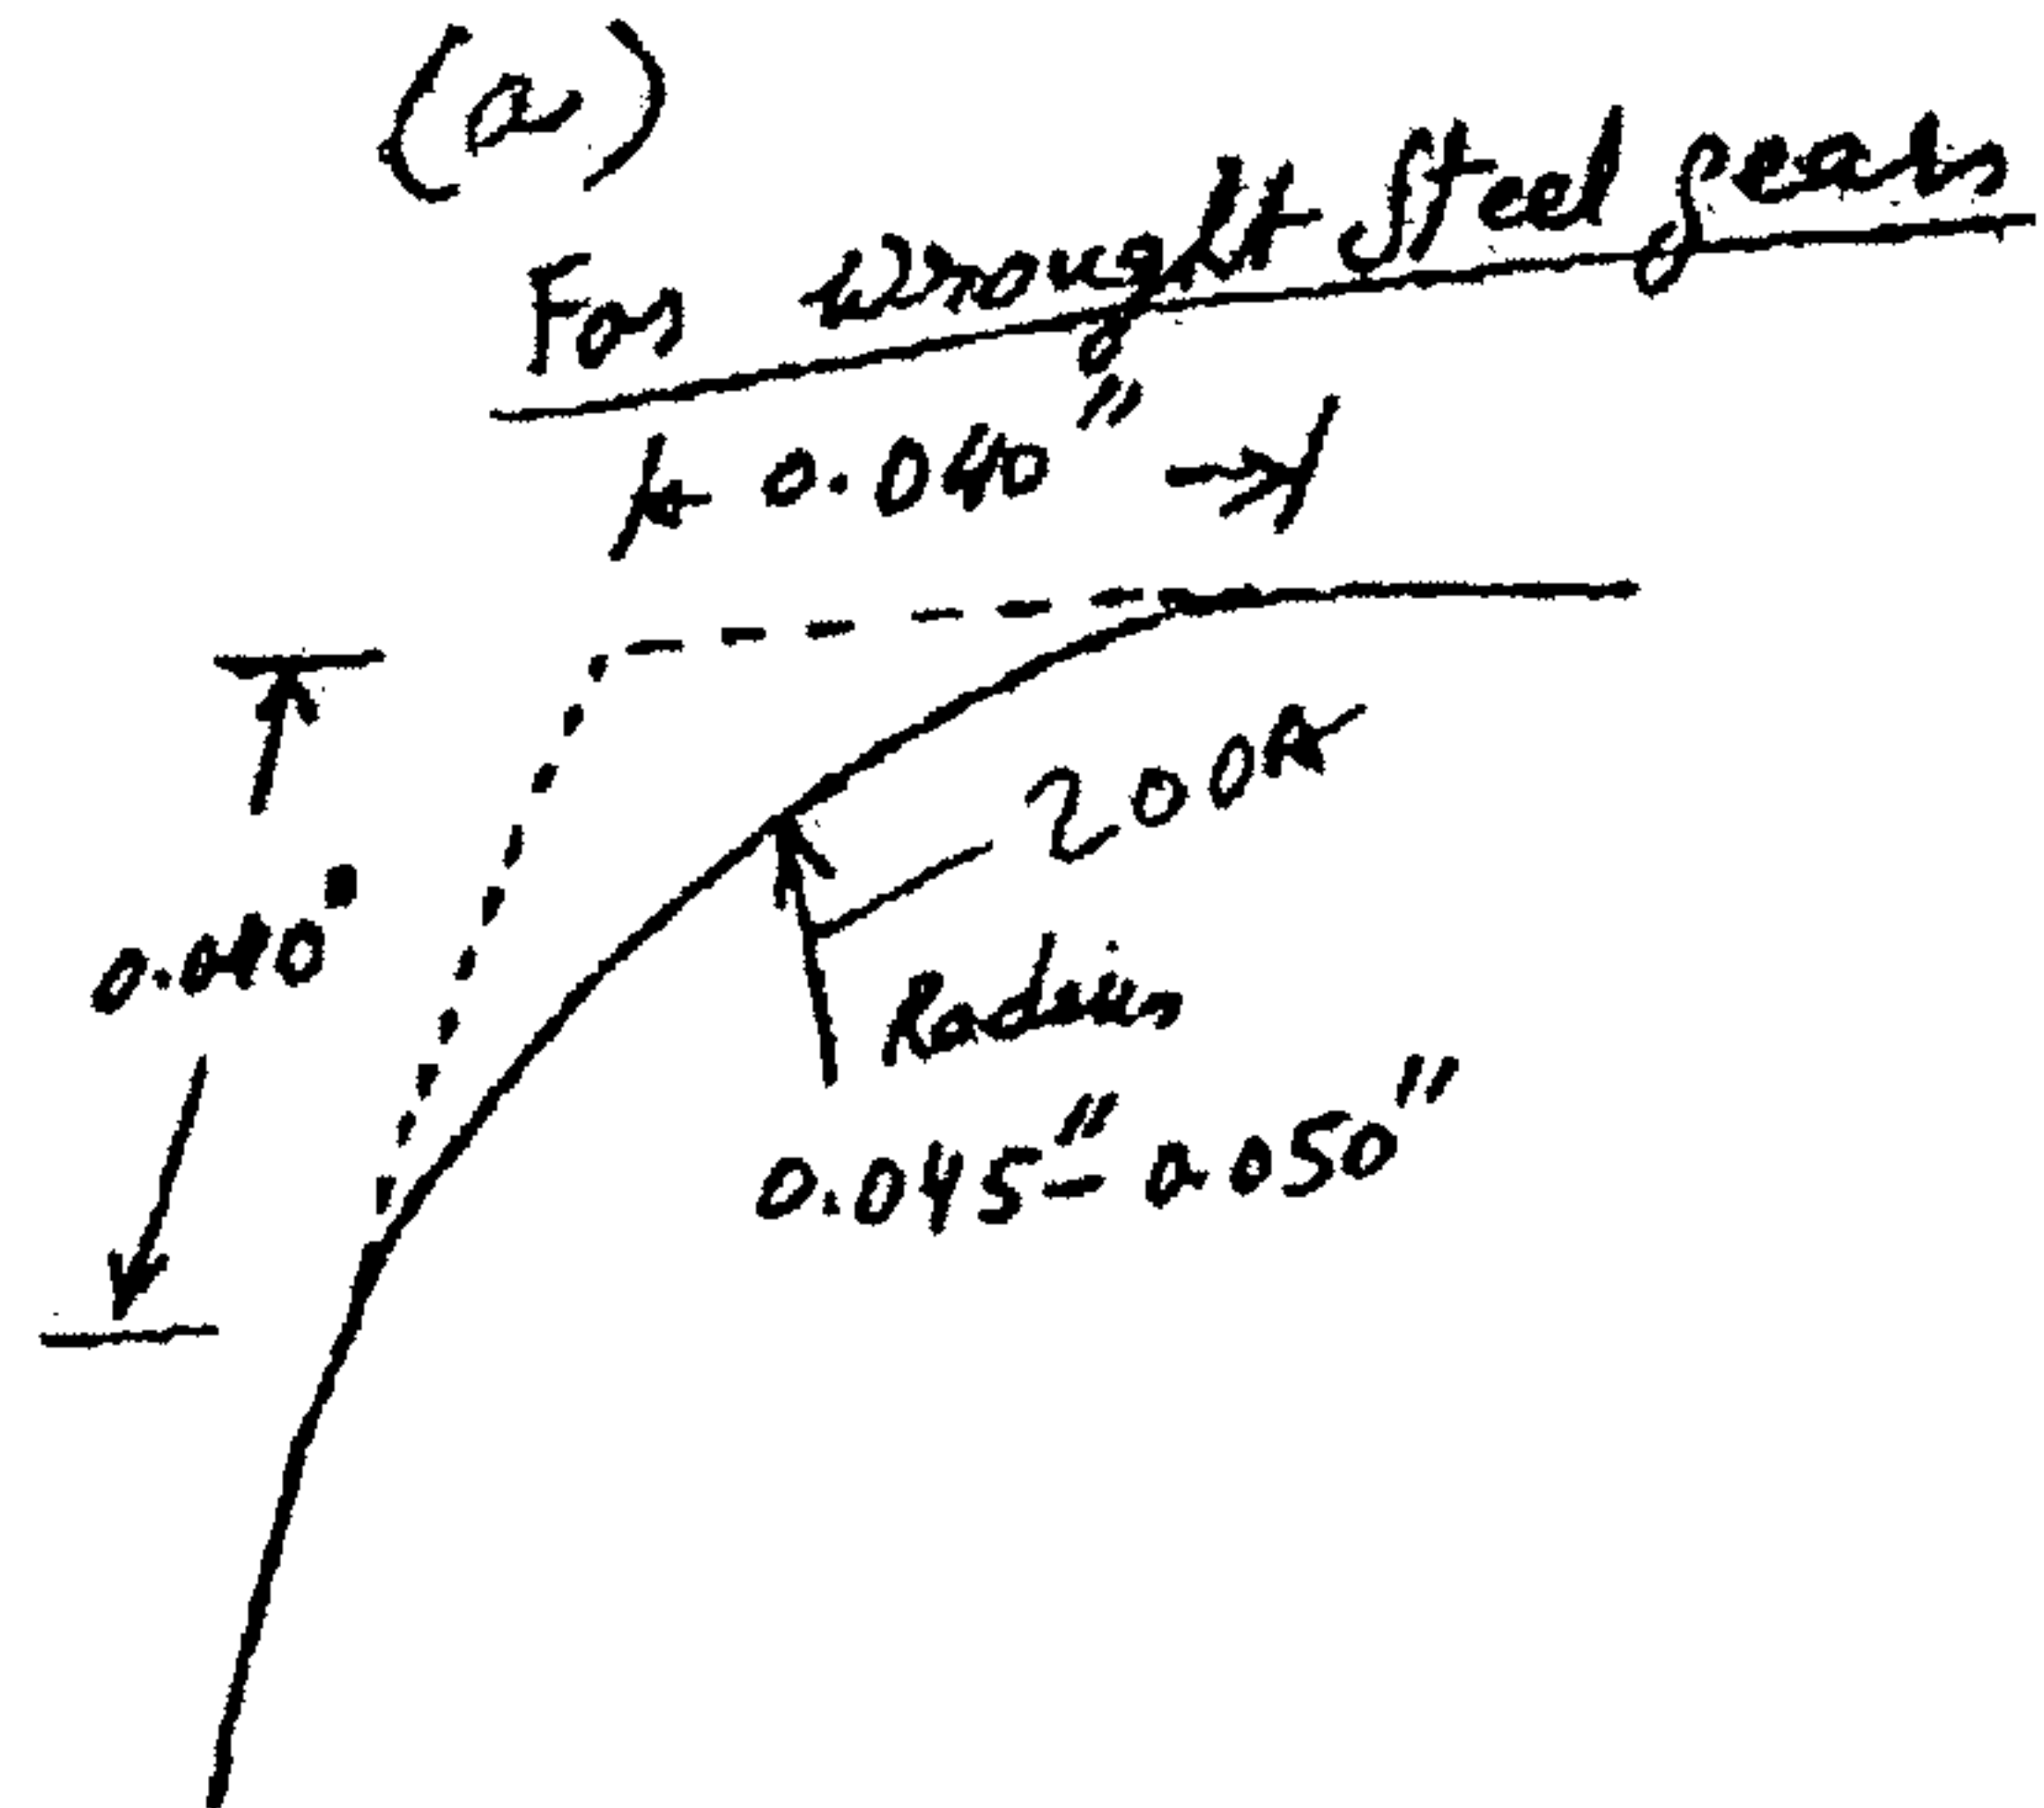 (a)
For wrought steel gears
0.040"
200A
0.040"
Radius
0.045"-0.050"